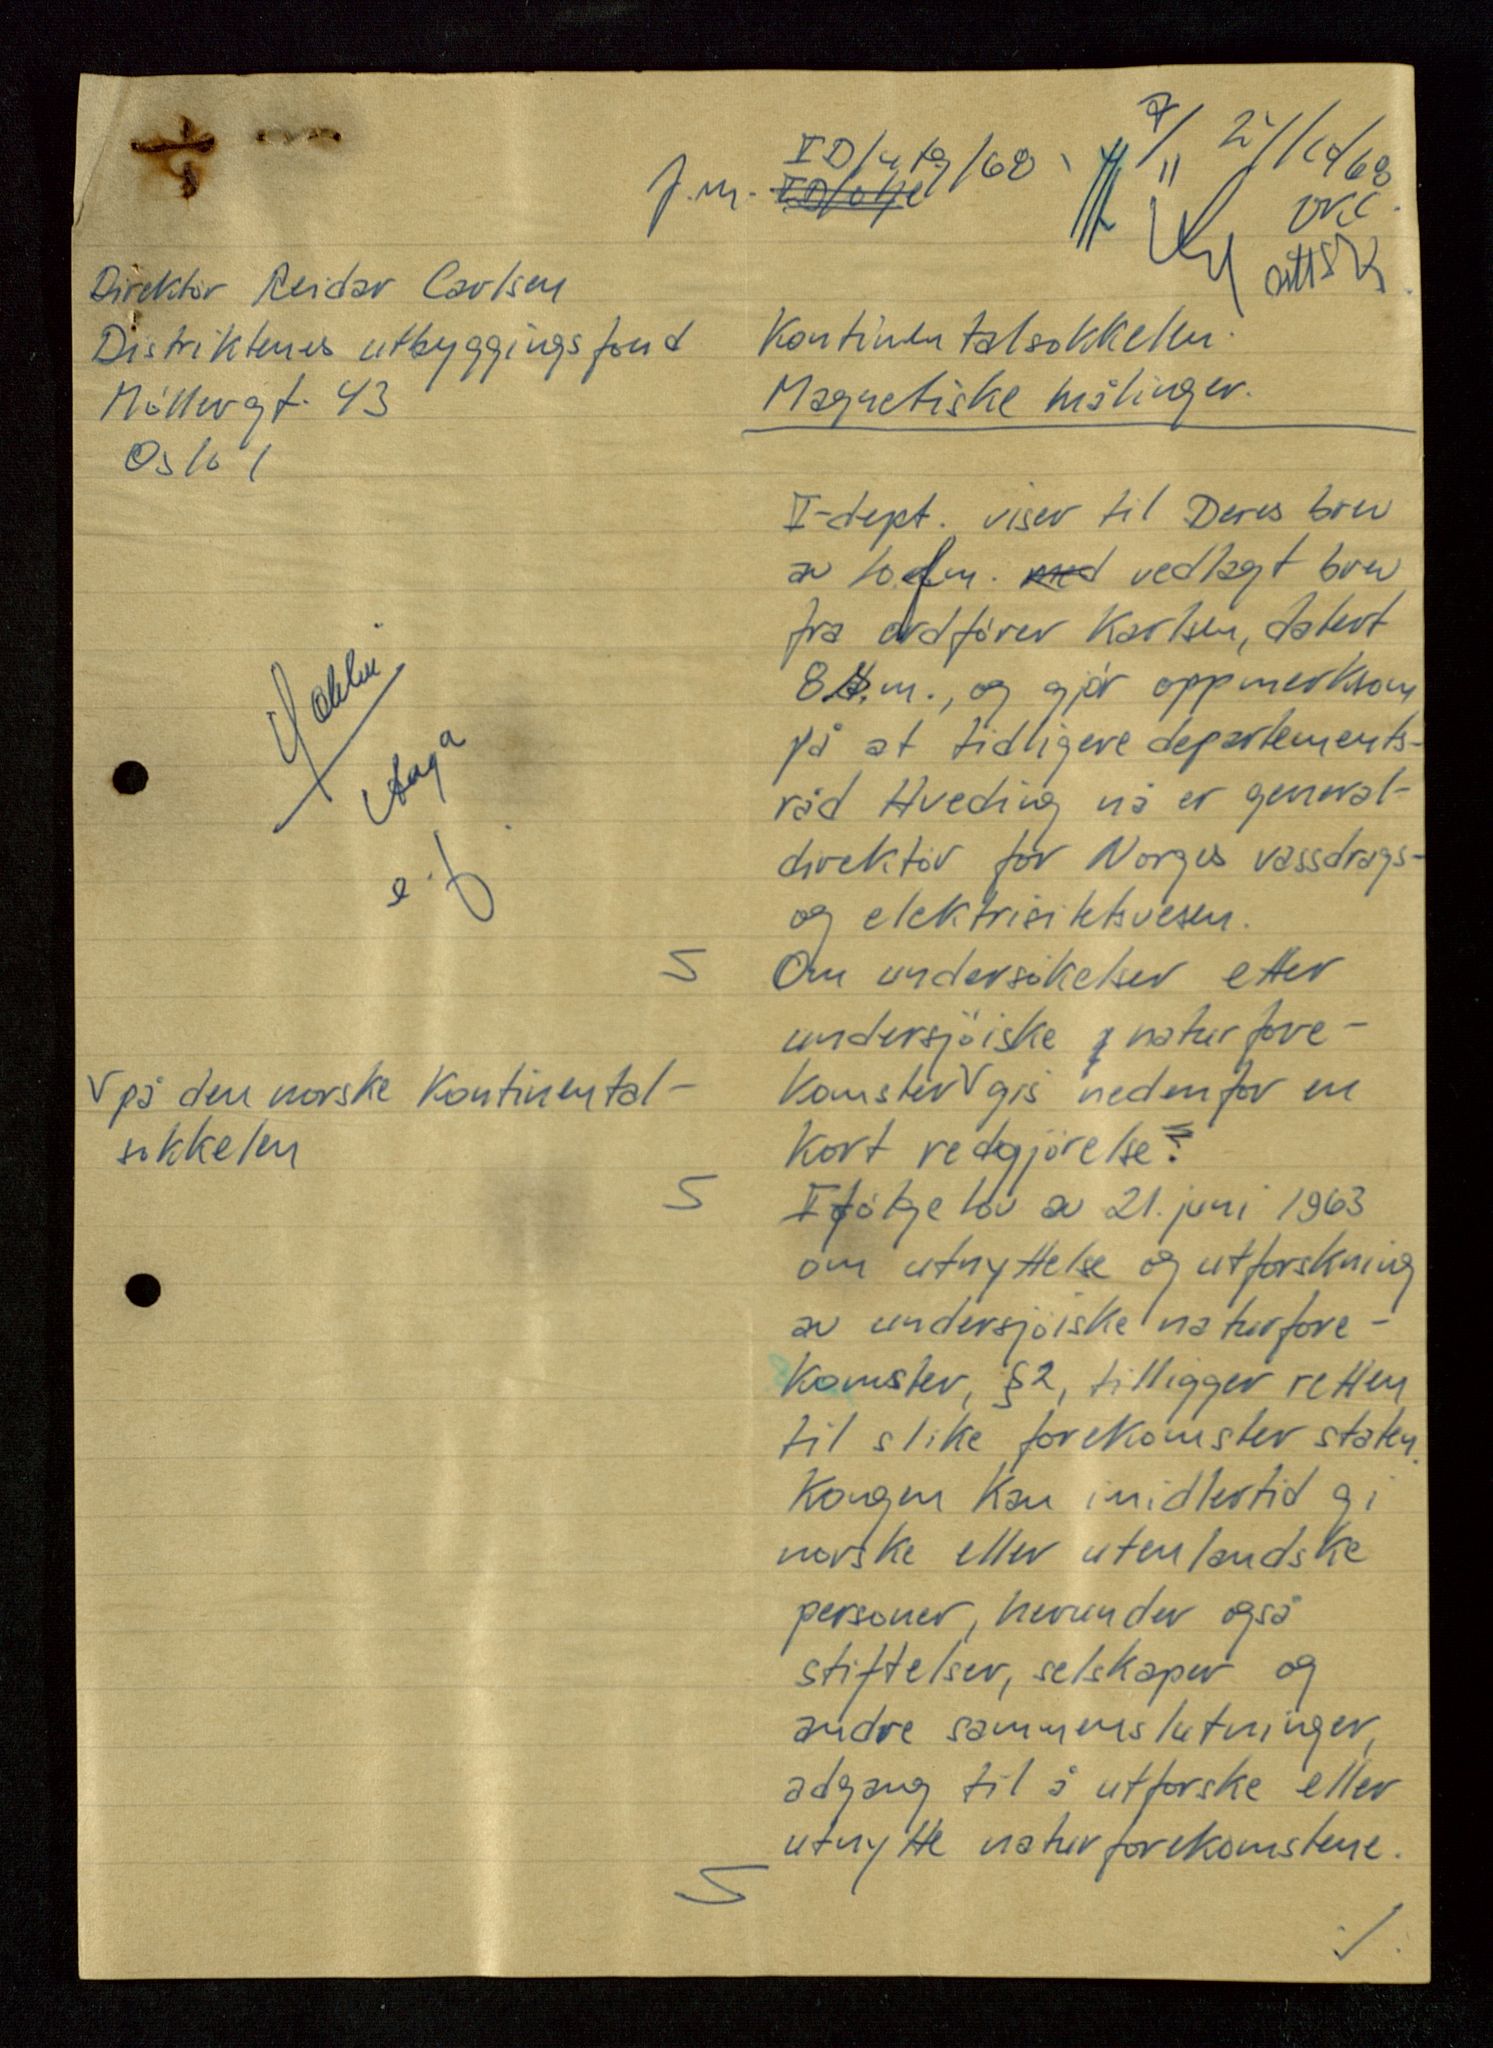 J.nr.
Direktör Reidar Carlsen
Distriktenes utbyggingsfond
Möllergt. 43
Oslo 1
Kontinentalsokkelen.
Magnetiske målinger.
I-dept. viser til Deres brev
av 10. f.m. med vedlagt brev
fra ordförer Karlsen, datert
8. s.m., og gjör oppmerksom
på at tidligere departements-
råd Hveding nå er general-
direktör for Norges vassdrags-
og elektrisitetsvesen.
Om undersökelser etter
undersjöiske naturfore-
komster V gis nedenfor en
kort redegjörelse:
V på den norske kontinental-
sokkelen
Ifölge lov av 21. juni 1963
om utnyttelse og utforskning
av undersjöiske naturfore-
komster, §2, tilligger retten
til slike forekomster staten.
Kongen kan imidlertid gi
norske eller utenlandske
personer, herunder også
stiftelser, selskaper og
andre sammenslutninger,
adgang til å utforske eller
utnytte naturforekomstene.
./.